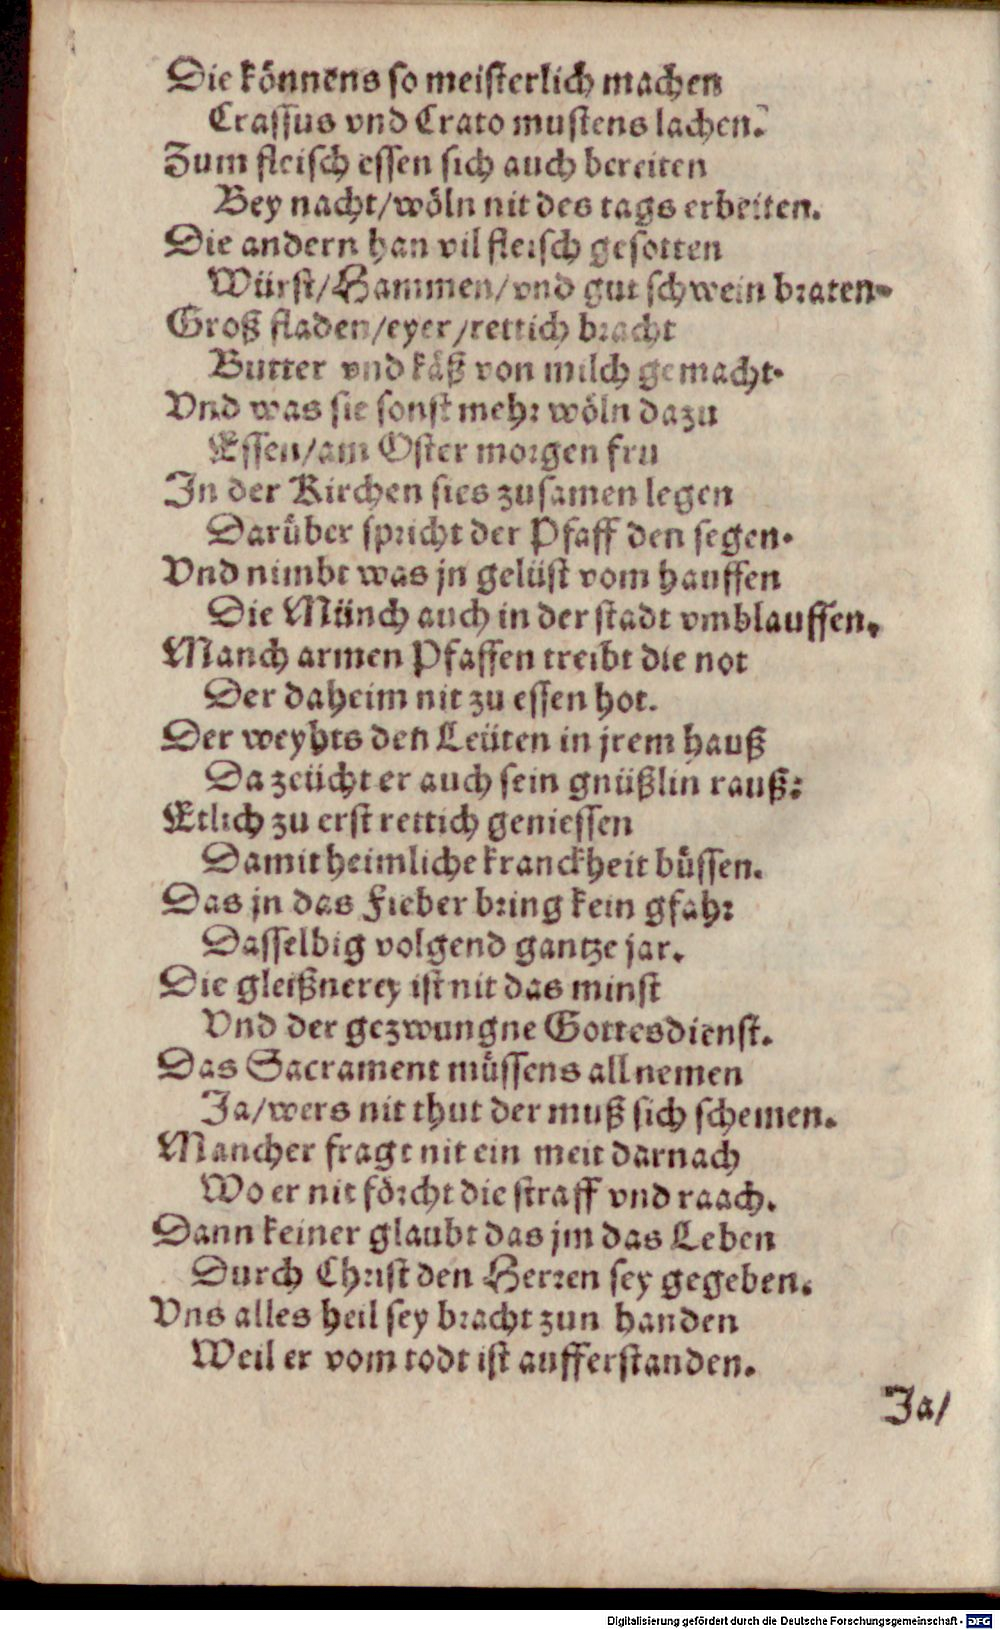 Die könnens so meisterlich machen
Crassus vnd Crato mustens lachen.
Zum fleisch essen sich auch bereiten
Bey nacht/wöln nit des tags erbeiten.
Die andern han vil fleisch gesotten
Würst/Hammen/vnd gut schwein braten.
Groß fladen/eyer/rettich bracht
Butter vnd käß von milch gemacht.
Vnd was sie sonst mehr wöln dazu
Essen/am Oster morgen fru
In der Kirchen sies zusamen legen
Darüber spricht der Pfaff den segen.
Vnd nimbt was jn gelüst vom hauffen
Die Münch auch in der stadt vmblauffen.
Manch armen Pfaffen treibt die not
Der daheim nit zu essen hot.
Der weyhts den Leüten in jrem hauß
Da zeücht er auch sein gnüßlin rauß:
Etlich zu erst rettich geniessen
Damit heimliche kranckheit büssen.
Das jn das Fieber bring kein gfahr
Dasselbig volgend gantze jar.
Die gleißnerey ist nit das minst
Vnd der gezwungne Gottesdienst.
Das Sacrament müssens all nemen
Ja/wers nit thut der muß sich schemen.
Mancher fragt nit ein meit darnach
Wo er nit förcht die straff vnd raach.
Dann keiner glaubt das jm das Leben
Durch Christ den Herren sey gegeben.
Vns alles heil sey bracht zun handen
Weil er vom todt ist aufferstanden.
Ja/
Digitalisierung gefördert durch die Deutsche Forschungsgemeinschaft - DFG